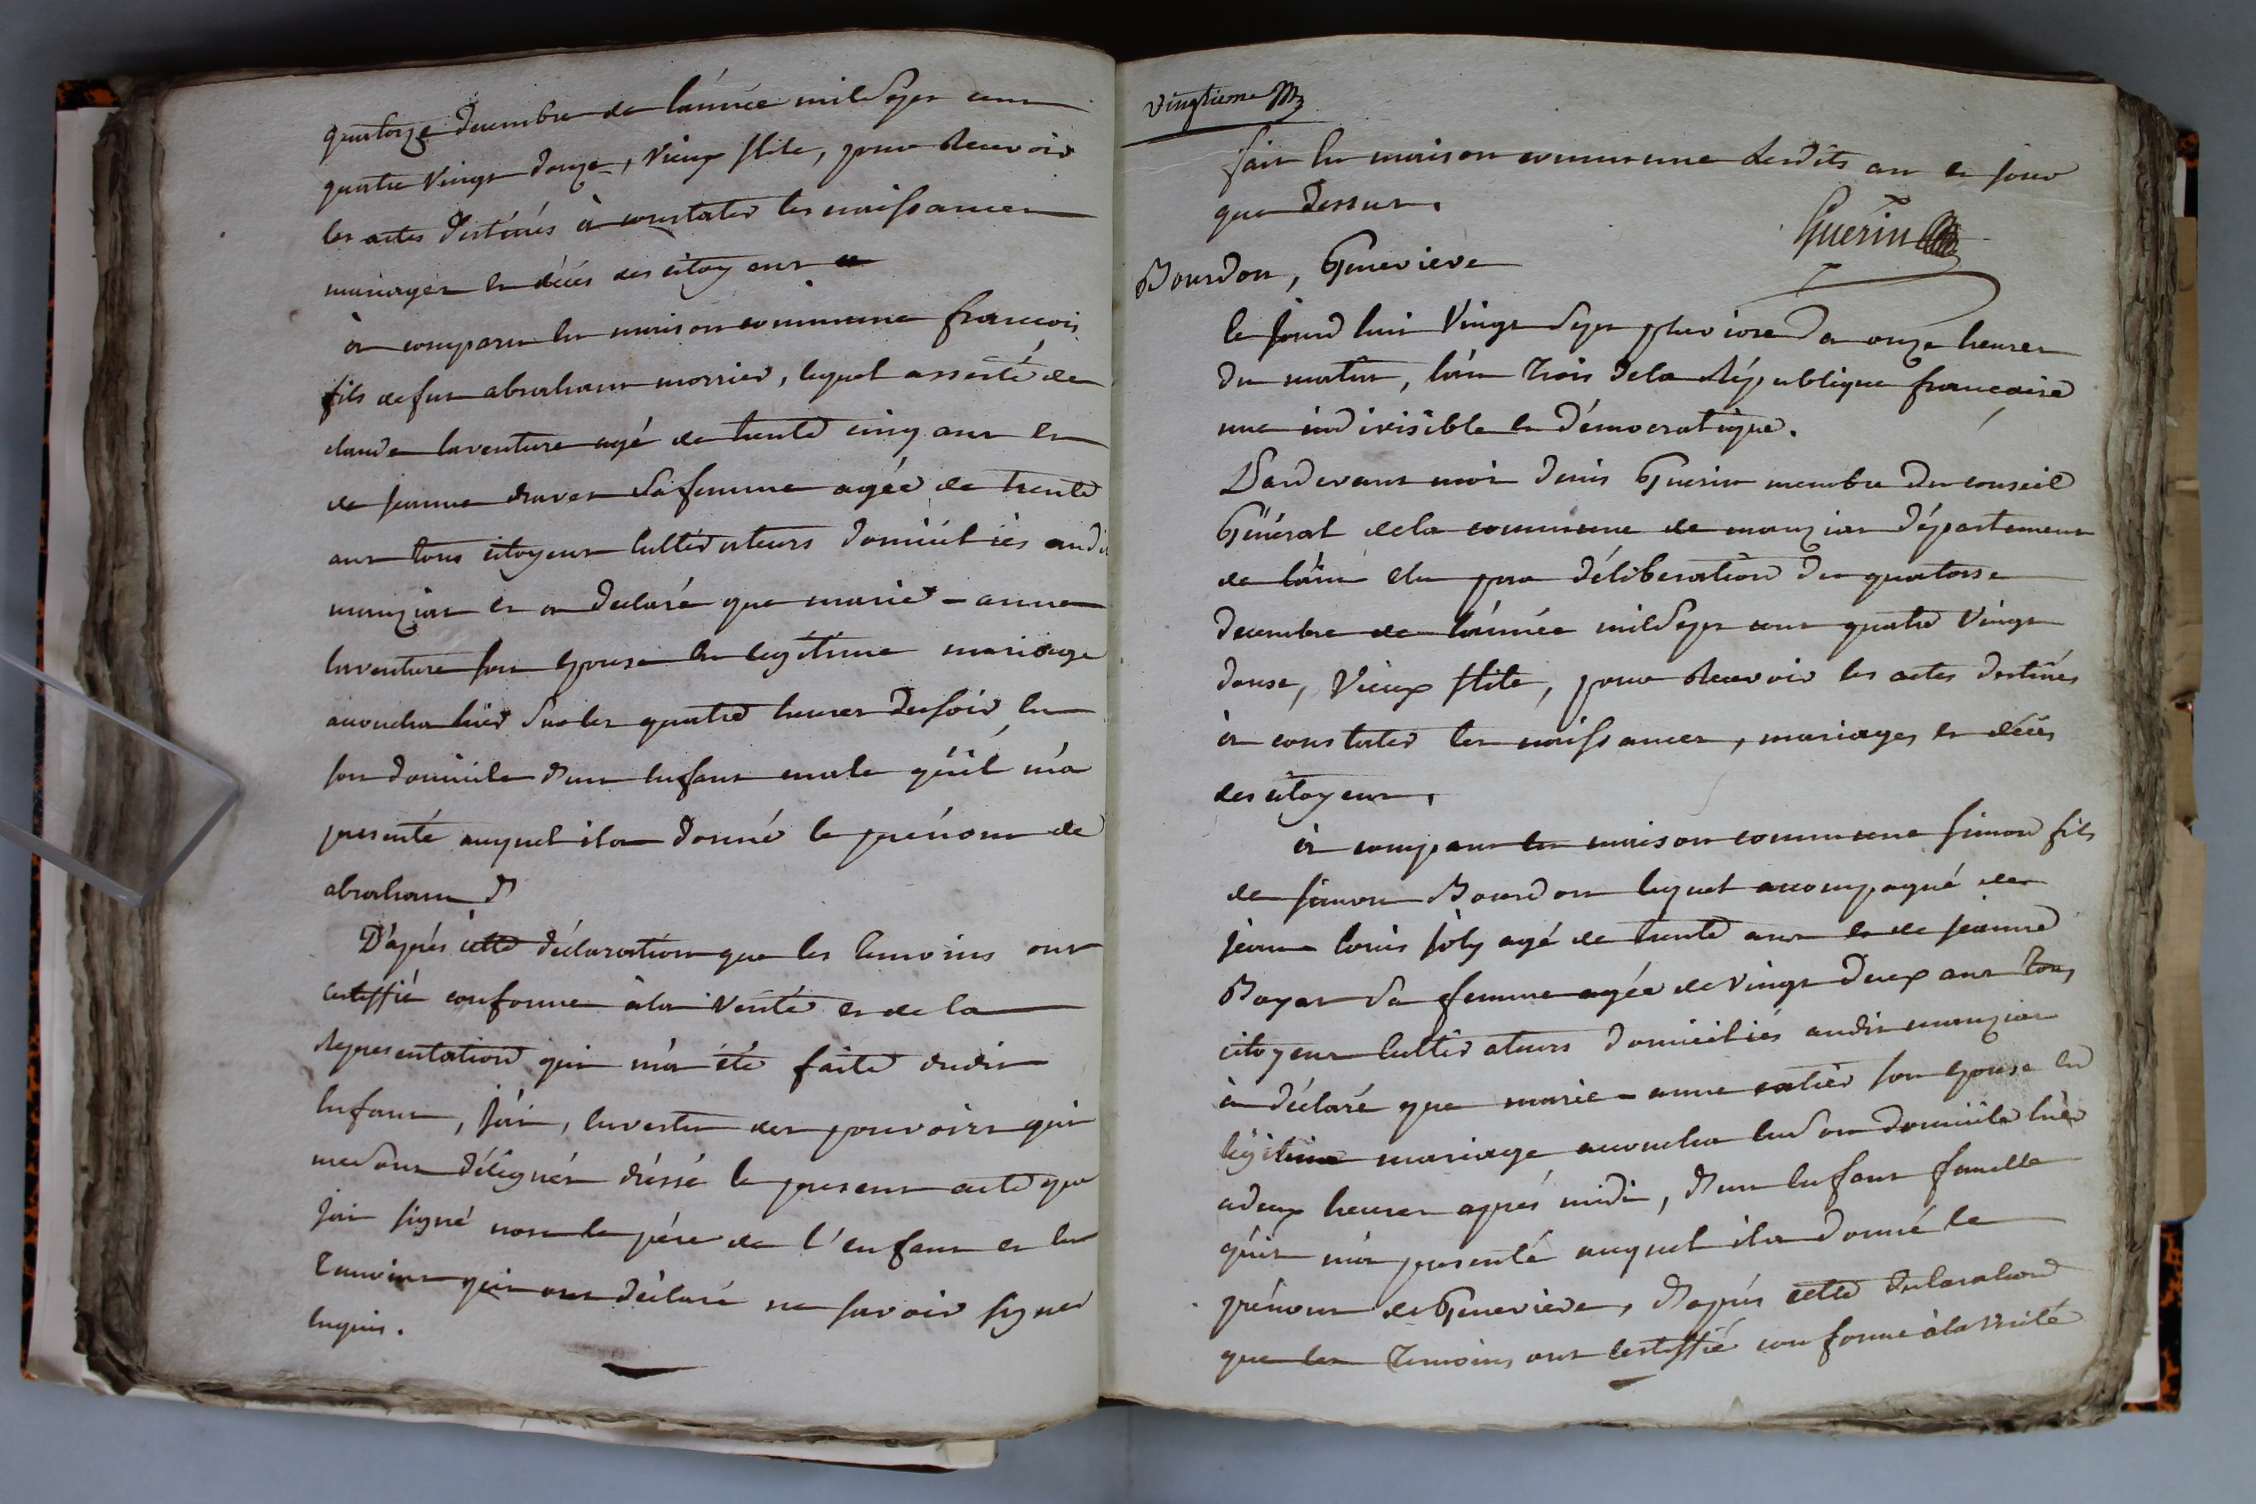 quatorze decembre de lánnée mil Sept cent
quatre Vingt douze, Vieux stile, pour Recevoir
les actes destinés à constater les naissances
mariages et décés des citoyens
à comparu en maison commune francois
fils de feu abraham morrier, lequel assisté de
claude laventure agé de trente cinq ans et
de jeanne Sa femme agée de trente
ans tous citoyens Cultivateurs domiciliés audit
manziat et a declaré que marie - anne
laventure son epouse en legitime mariage
accoucha hiér Sur les quatre heures du soir en
son domicile d'un enfant male qu'il m'a
presenté auquel il a donné le prénom de
abraham
D'aprés cette déclaration que les temoins ont
certiffié conforme à la Verité et de la
Représentation qui m'a été faite dudit
enfant, j'ai, en vertu des pouvoirs qui
me Sont délégués dréssé le present acte que
j'ai signé non le pére de l'enfant et les
Temoins qui ont déclaré ne savoir signer
enquis.
Vingtieme
fait en maison commune desdits an et jour
que dessus.
Guérin
Bourdon, Genevieve
le Jourd'hui Vingt Sept pluviose a onze heures
du matin, l'an Trois de la République francaise
une indivisible et démocratique.
Pardevant moi denis Guerin membre du conseil
Général de la commune de manziat département
de l'ain élu par déliberation du quatorse
decembre de l'année mil Sept cent quatre Vingt
douse, Vieux stile, pour Recevoir les actes destinés
à constater les naissances, mariages et décés
des citoyens,
à comparu en maison commune simon fils
de simon Bourdon lequel accompagné de
jean - louis joly agé de trente ans et de jeanne
Boyat Sa femme agée de Vingt deux ans tous
citoyens Cultivateurs domiciliés audit manziat
à déclaré que marie - anne catier son epouse en
légitime mariage accoucha en Son domicile hiér
a deux heures aprés midi, d'un enfant femelle
qu'il m'a presenté auquel il a donné le
prénom de Genevieve, D'aprés cette déclaration
que les Temoins ont certiffié conforme à la Verité